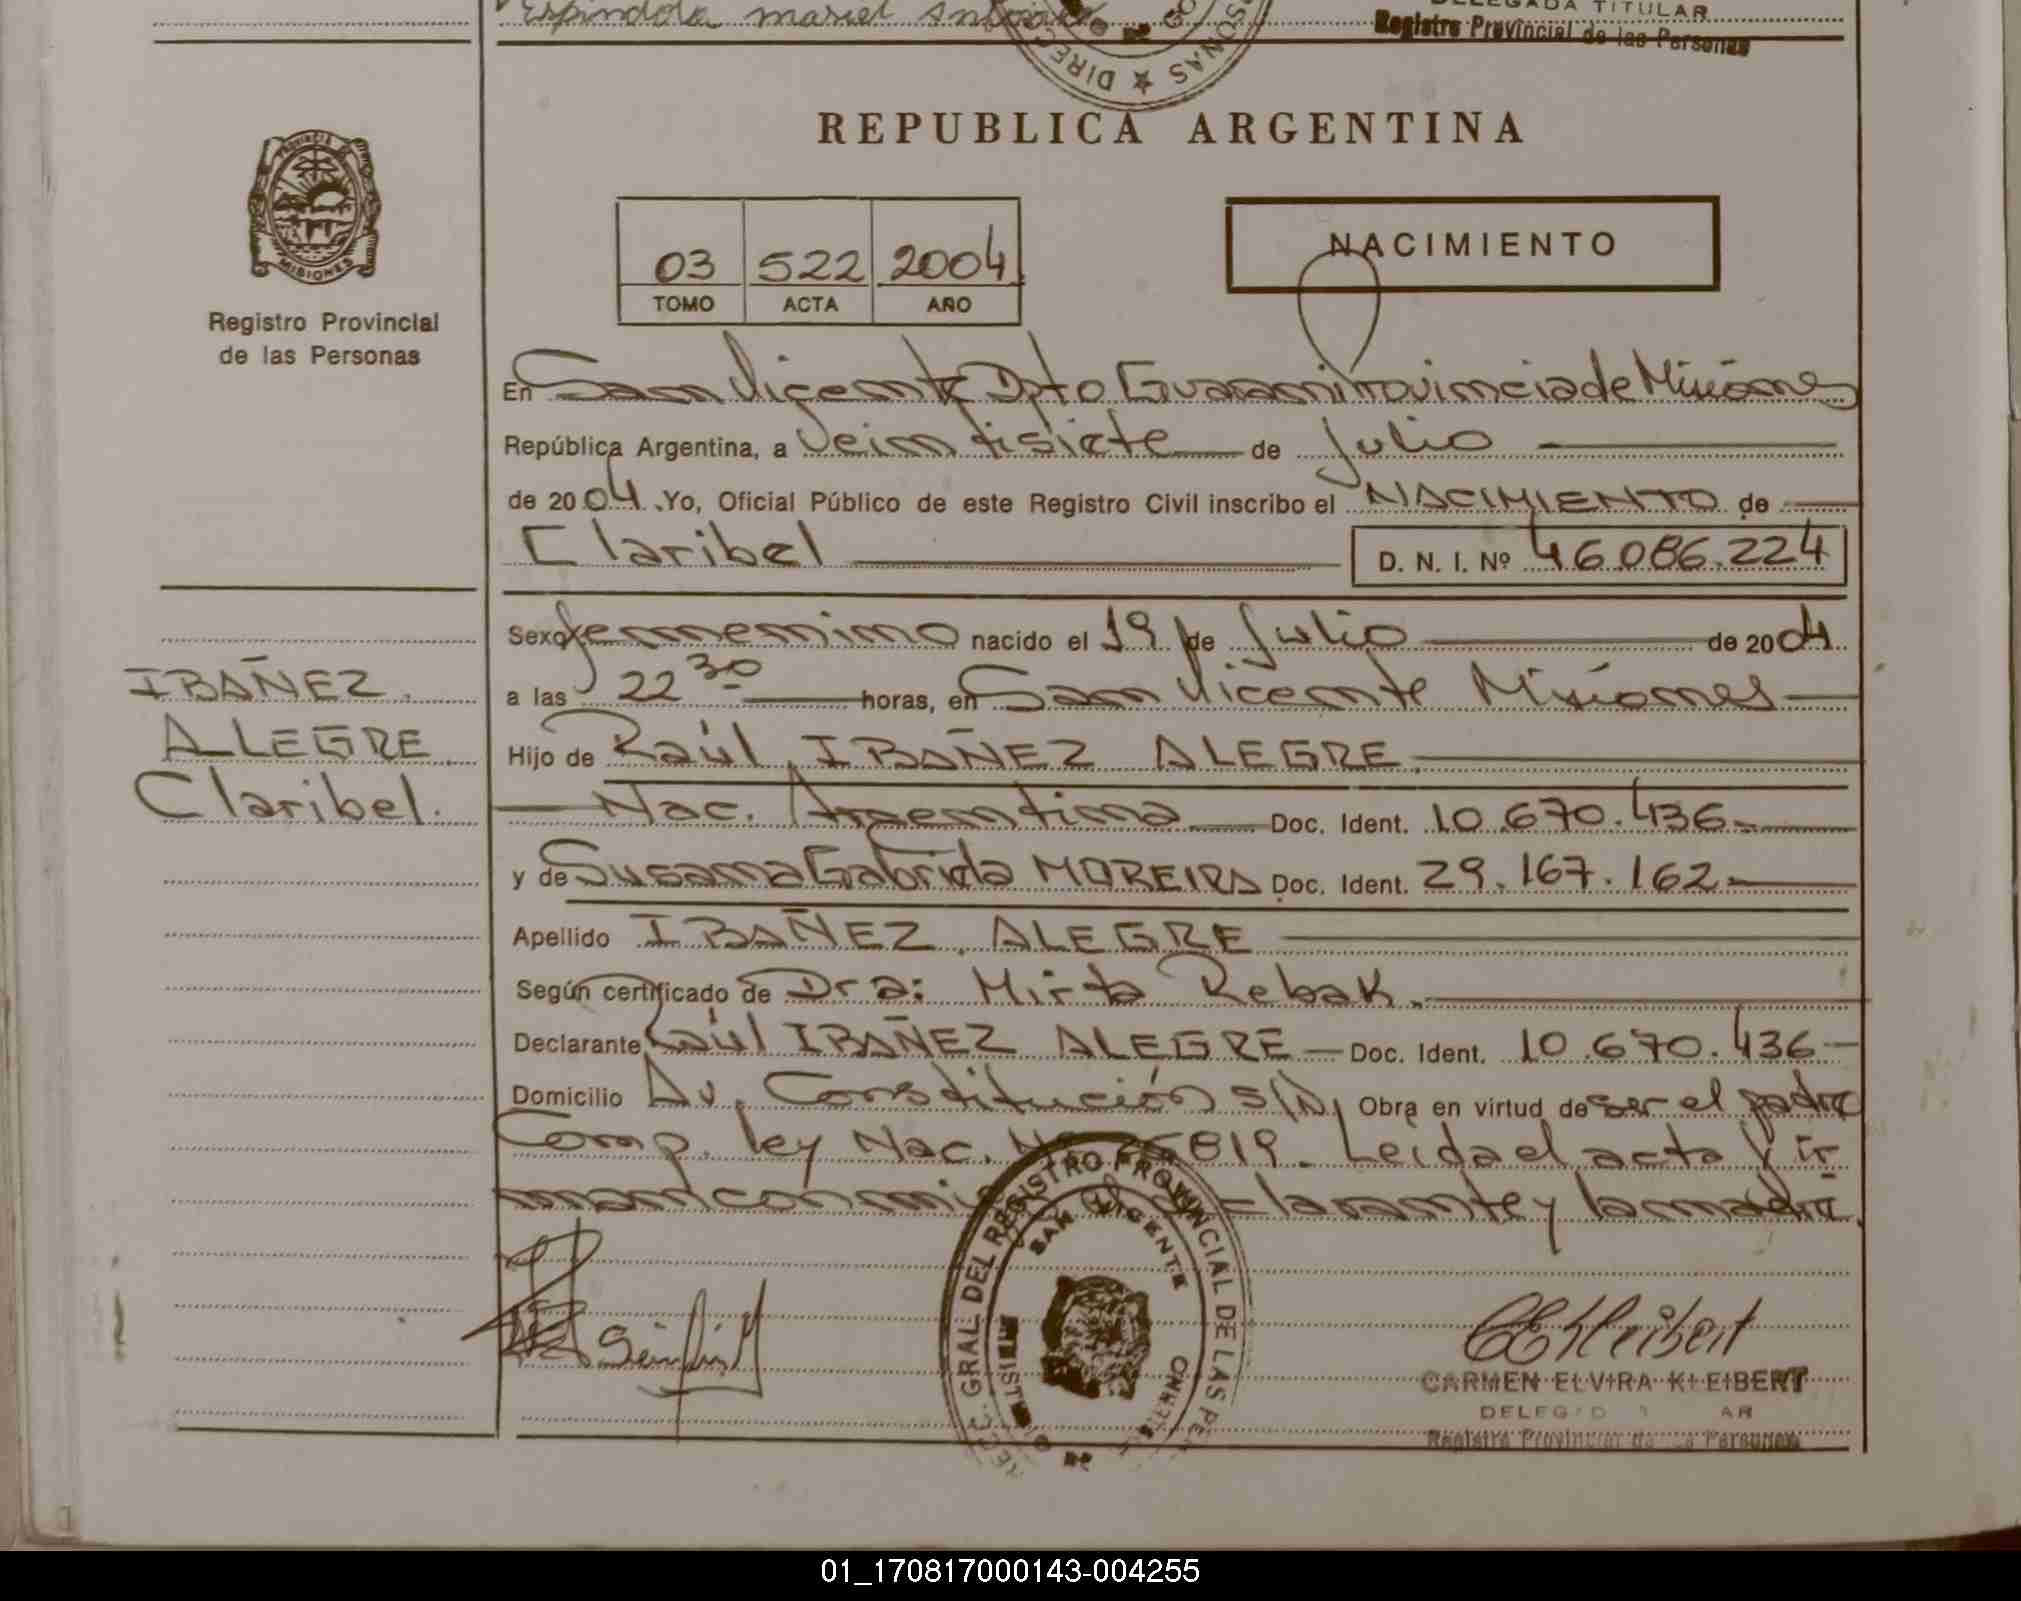 Espindola mariel
DELEGADA TITULAR
Registro Provincial de las Personas
DIREC ★ SONAS
REPUBLICA ARGENTINA
PROVINCIA DE
MISIONES
Registro Provincial
de las Personas
03 522 2004
TOMO ACTA AÑO
NACIMIENTO
En San Vicente Dpto Guarani Provincia de Misiones
República Argentina, a Veintisiete de Julio
de 2004. Yo, Oficial Público de este Registro Civil inscribo el NACIMIENTO de
Claribel D. N. I. Nº 46.086.224
Sexo femenino nacido el 19 de Julio de 2004
a las 22 30 horas, en San Vicente Misiones
Hijo de Raúl IBAÑEZ ALEGRE.
Nac. Argentina Doc. Ident. 10.670.436
y de Susana Gabriela MOREIRA Doc. Ident. 29.167.162
Apellido IBAÑEZ ALEGRE
Según certificado de Dra: Mirta Rebak.
Declarante Raúl IBAÑEZ ALEGRE Doc. Ident. 10.670.436
Domicilio Av. Constitución S/N Obra en virtud de ser el padre
Comp. ley Nac. Leida el acta fir
man conmigo el declarante y la madre.
IBAÑEZ
ALEGRE
Claribel.
GRAL. DEL REGISTRO PROVINCIAL DE LAS PE
SAN VICENTE
MISIONES
CEKleibert
CARMEN ELVIRA KLEIBERT
Registro Provincial de las Personas
01_170817000143-004255